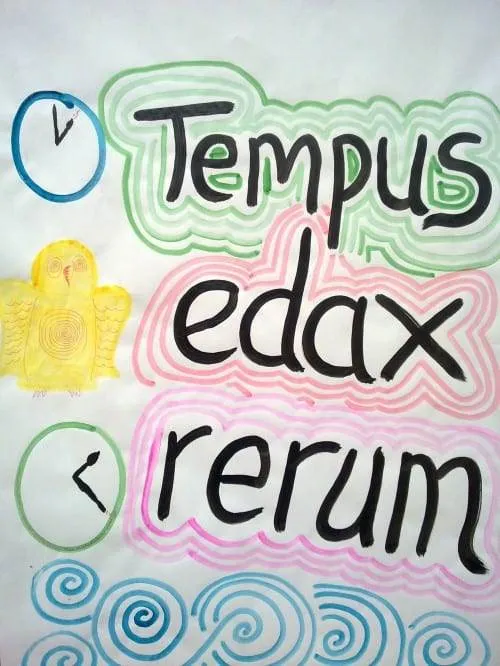 Tempus
edax
rerum